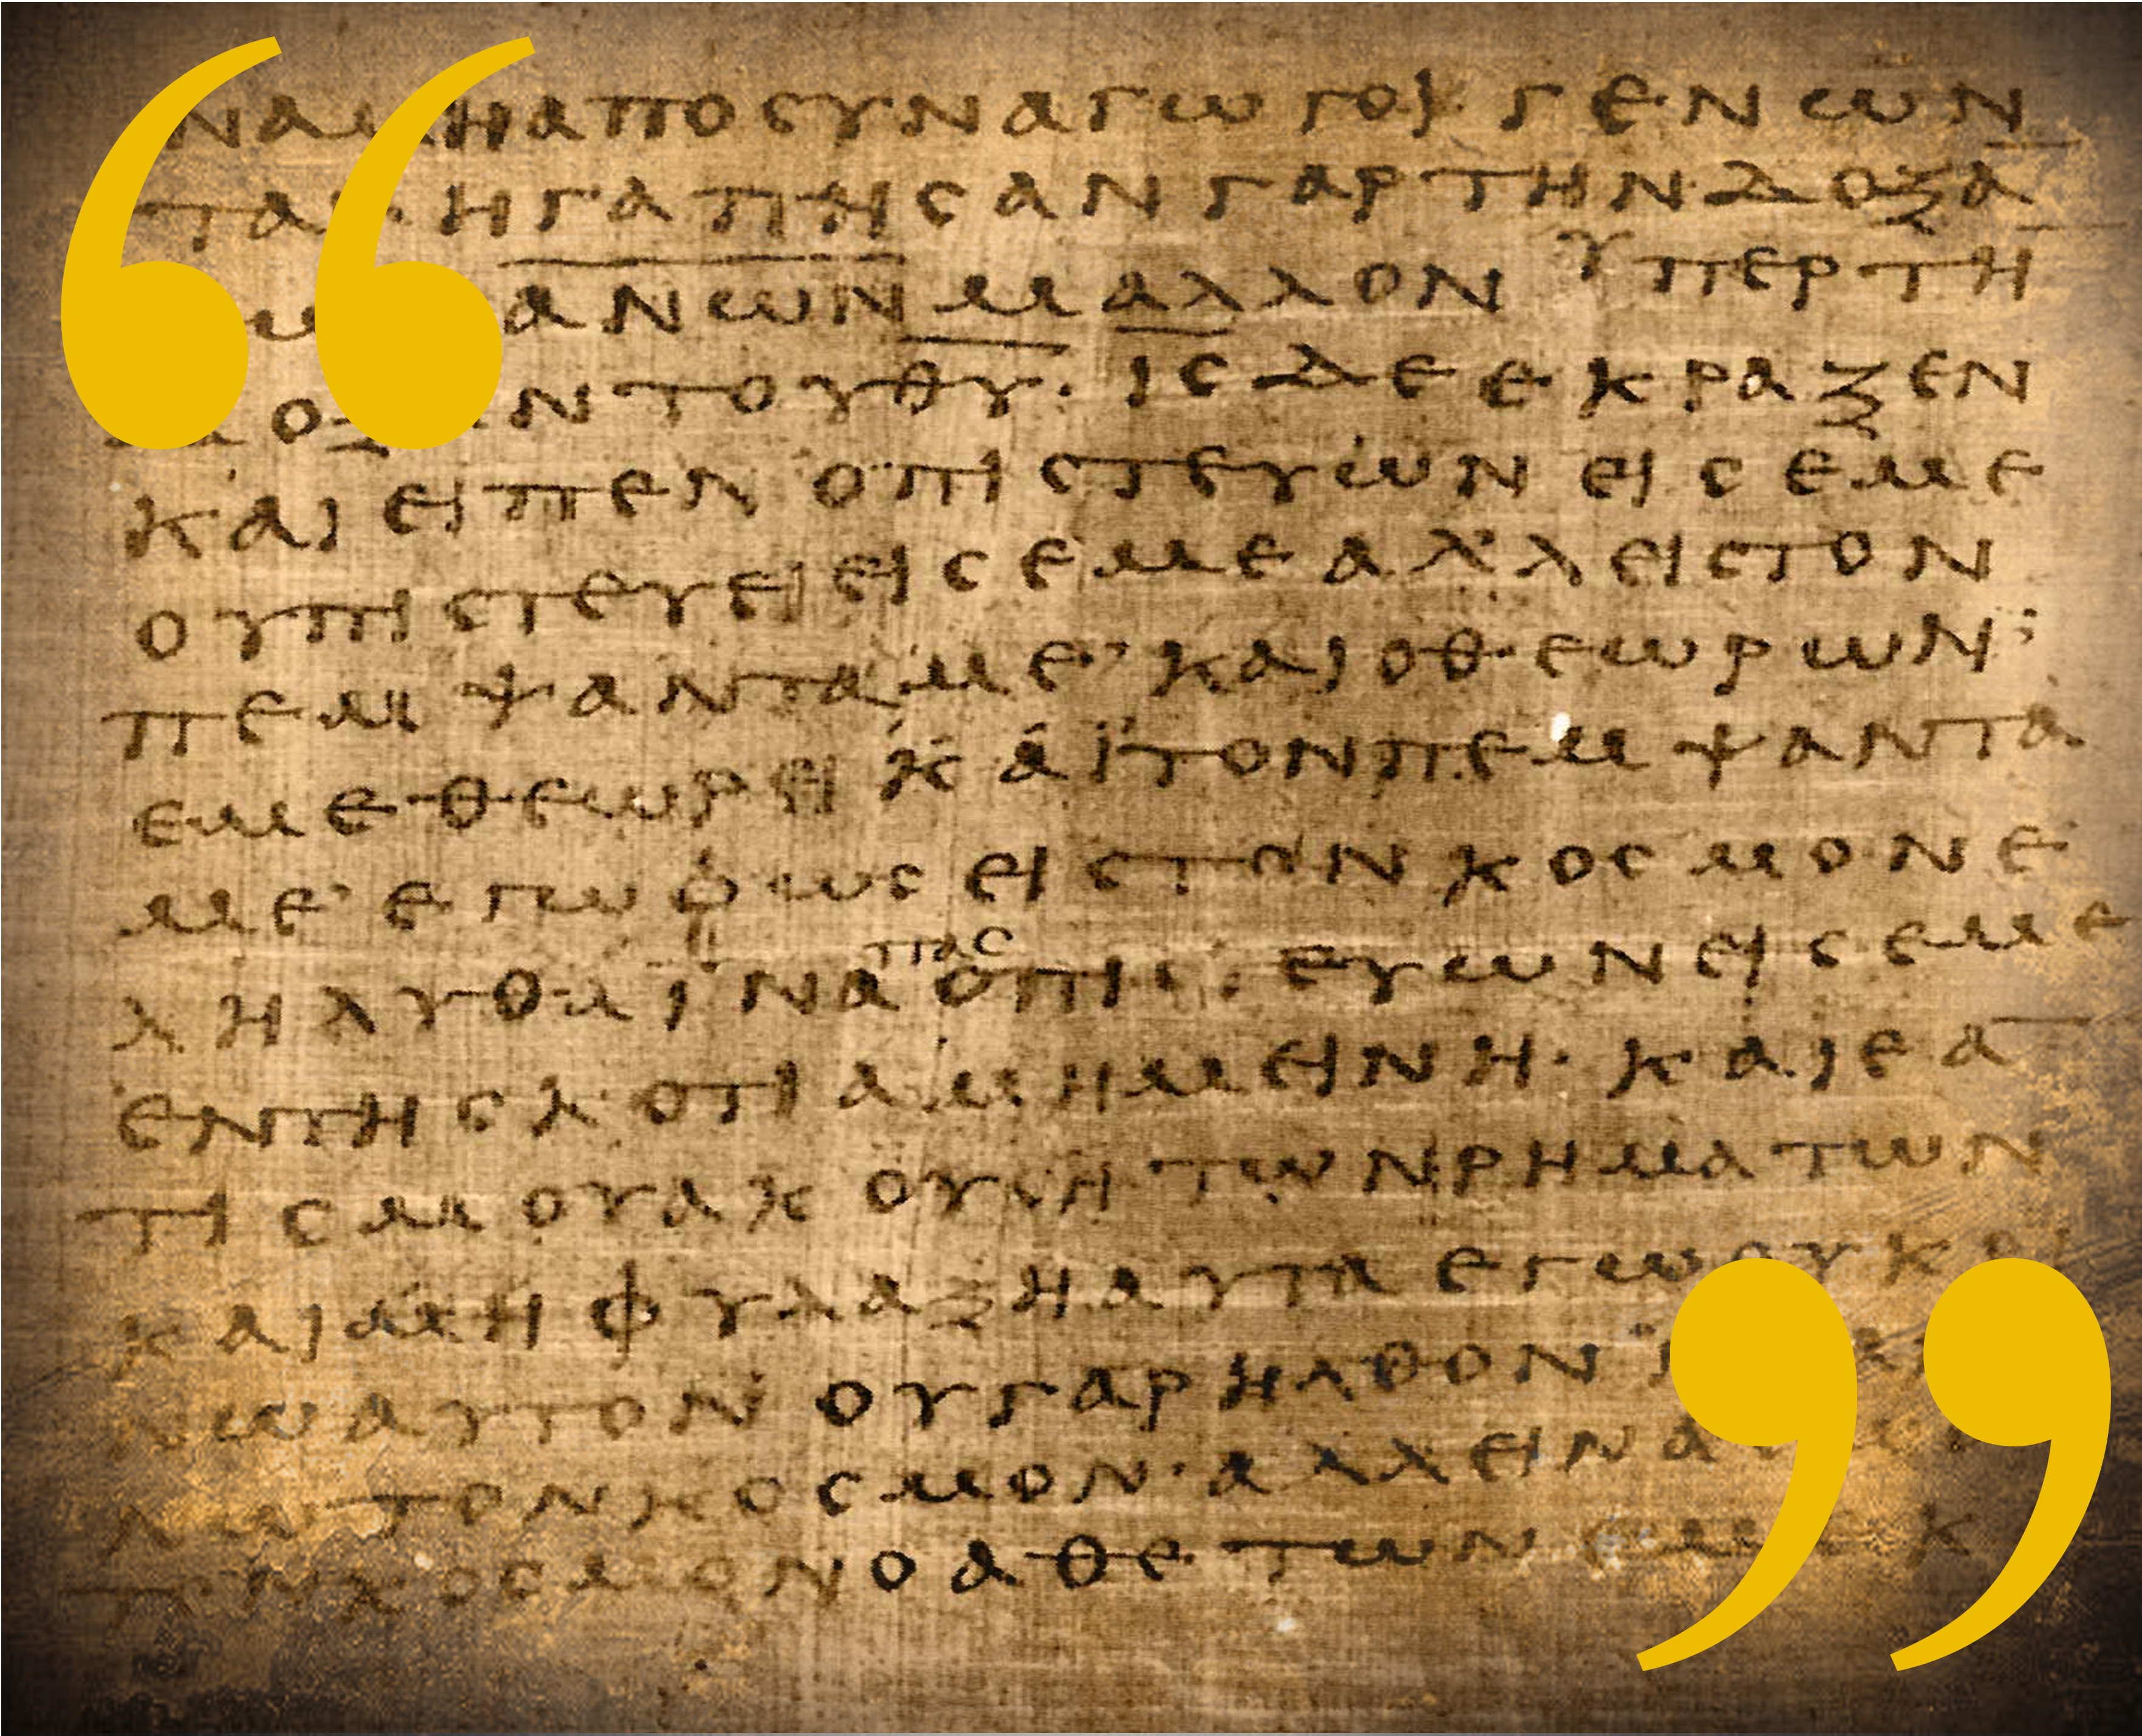 ΑΠΟϹΥΝΑΓΩΓΟΙ ΓΕΝΩΝ
ΤΑΙ ΗΓΑΠΗϹΑΝ ΓΑΡ ΤΗΝ ΔΟΞΑ
ΑΝΩΝ ΜΑΛΛΟΝ ΥΠΕΡ ΤΗ
ΤΟΥ ΘΥ· ΙϹ ΔΕ ΕΚΡΑΞΕΝ
ΚΑΙ ΕΙΠΕΝ Ο ΠΙϹΤΕΥΩΝ ΕΙϹ ΕΜΕ
ΟΥ ΠΙϹΤΕΥΕΙ ΕΙϹ ΕΜΕ ΑΛΛ ΕΙϹ ΤΟΝ
ΠΕΜΨΑΝΤΑ ΜΕ ΚΑΙ Ο ΘΕΩΡΩΝ
ΕΜΕ ΘΕΩΡΕΙ ΚΑΙ ΤΟΝ ΠΕΜΨΑΝΤΑ
ΜΕ ΕΓΩ ΦΩϹ ΕΙϹ ΤΟΝ ΚΟϹΜΟΝ Ε
ΛΗΛΥΘΑ ΙΝΑ ΠΑϹ Ο ΠΙϹΤΕΥΩΝ ΕΙϹ ΕΜΕ
ΕΝ ΤΗ ϹΚΟΤΙΑ ΜΗ ΜΕΙΝΗ· ΚΑΙ ΕΑ
ΤΙϹ ΜΟΥ ΑΚΟΥϹΗ ΤΩΝ ΡΗΜΑΤΩΝ
ΚΑΙ ΜΗ ΦΥΛΑΞΗ ΑΥΤΑ ΕΓΩ ΟΥ
ΝΩ ΑΥΤΟΝ ΟΥ ΓΑΡ ΗΛΘΟΝ
ΝΩ ΤΟΝ ΚΟϹΜΟΝ· ΑΛΛ ΕΙΝΑ
ΤΟΝ ΚΟϹΜΟΝ Ο ΑΘΕΤΩΝ